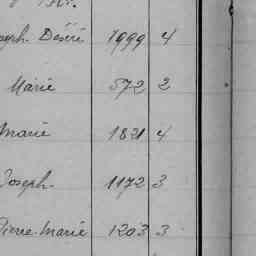 Joseph Désiré 1999 4
Marie 572 2
Marie 1821 4
Joseph 1172 3
Pierre-Marie 1203 3